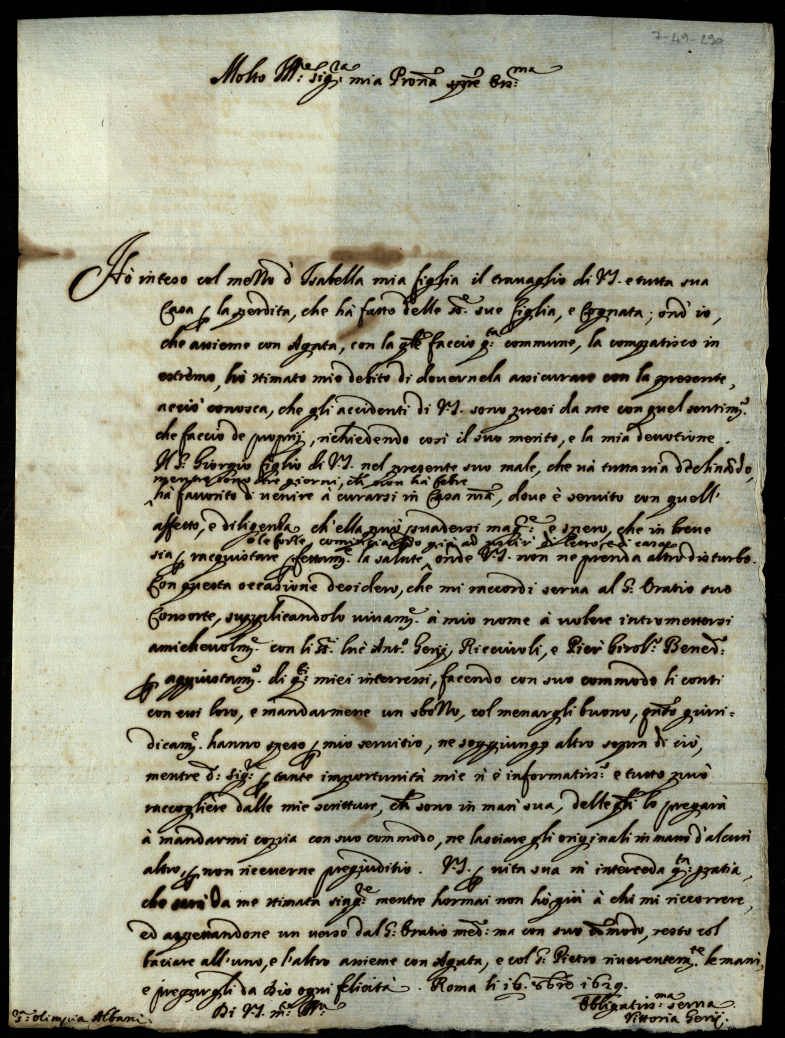 7-49-290
Molto Ill:re sig:ra mia Prona sempre oss:ma
Hò inteso col mezzo d' Isabella mia figlia il travaglio di V.S. e tutta sua
Casa p la perdita, che hà fatto delle sue figlia, e Cognata; ond' io,
che assieme con Agata, con la qle faccio q:ta commune, la compatisco in
estremo, hò stimato mio debito di dovernela assicurare con la presente,
acciò conosca, che gli accidenti di V.S. sono presi da me con quel sentim:
che faccio de proprij, richiedendo così il suo merito, e la mia devotione.
Il S: Giorgio figlio di V.S. nel presente suo male, che và tuttavia declinando,
mentre sono tre giorni, ch non hà febre
hà favorito di venire à curarsi in Casa mia, dove è servito con quell'
affetto, e diligenza ch' ella può psuadersi mag:re e spero, che in breve
sia p racquistare pfettam:e la salute, onde V.S. non ne prenda altro disturbo.
Con questa occasione desidero, che mi raccordi serva al S: Oratio suo
Consorte, supplicandolo vivam: à mio nome à volere intromettersi
amichevolm: con li Ant:o Gerij, Riccivoli, e Pier Girol: Bened:
p aggiustam: di q:ti miei interressi, facendo con suo commodo li conti
con essi loro, e mandarmene un sbozzo, col menargli buono, qnto giuri-
dicam: hanno speso p mio servitio, ne soggiungo altro sopra di ciò,
mentre d: sig:re p tante importunità mie n' è informatis:o e tutto può
raccogliere dalle mie scritture, ch sono in man sua, delle qli lo pregarà
à mandarmi coppia con suo commodo, ne lasciare gli originali in mano d'alcun
altro, p non riceverne pregiuditio. V.S. p vita sua m' interceda q:ta gratia,
che sarà da me stimata sing:re mentre hormai non hò più à chi mi riccorrere,
ed aspettandone un verso dal S: Oratio med: ma con suo comodo, resto col
baciare all'uno, e l'altro assieme con Agata, e col S: Pietro riverentem:te le mani,
e pregargli da Dio ogni felicità. Roma li 16. 1629.
Di V.S. m:to Ill:re
Obligatis:ma serva
Vittoria Gerij.
S:ra Olimpia Albani.